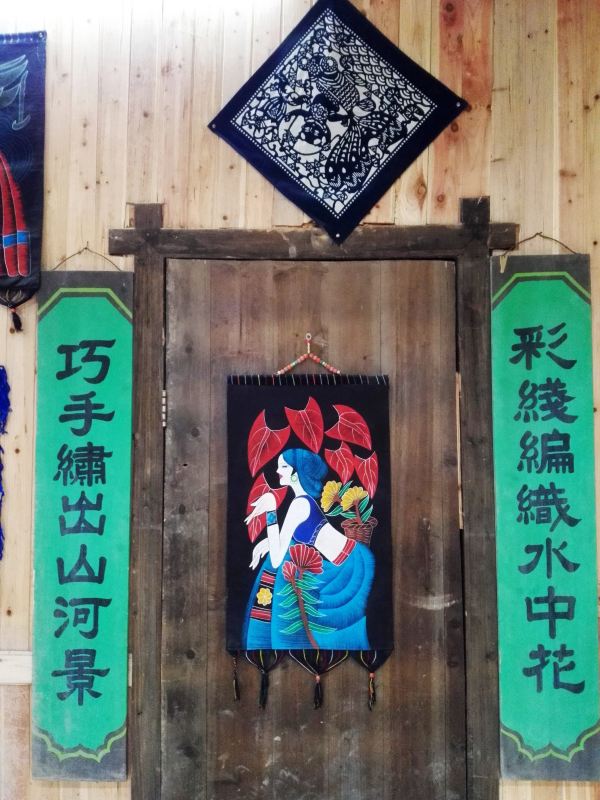 彩綫編織水中花
巧手繡出山河景